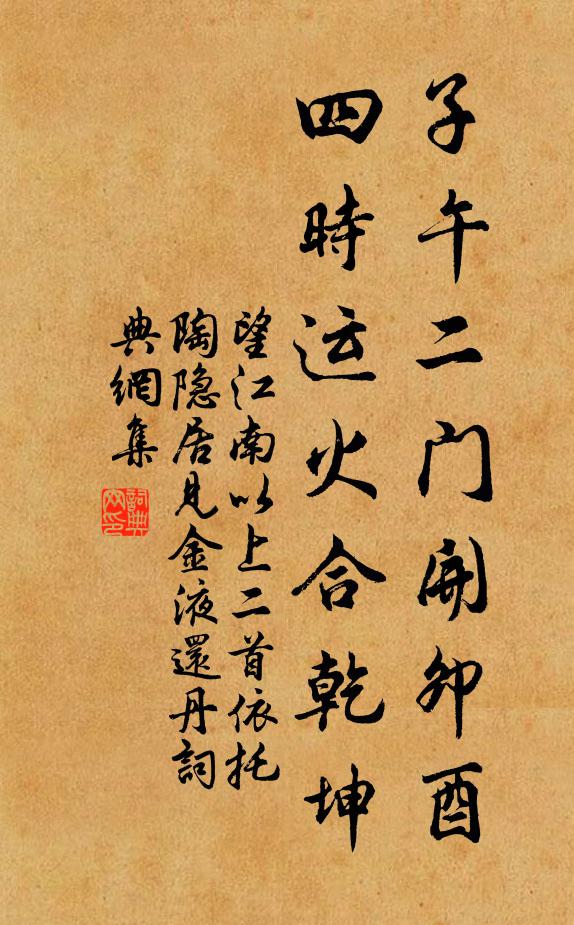 子午二门開卯酉
四時运火合乾坤
望江南以上二首依托
陶隐居見金液還丹詞
典網集
詞典
网印